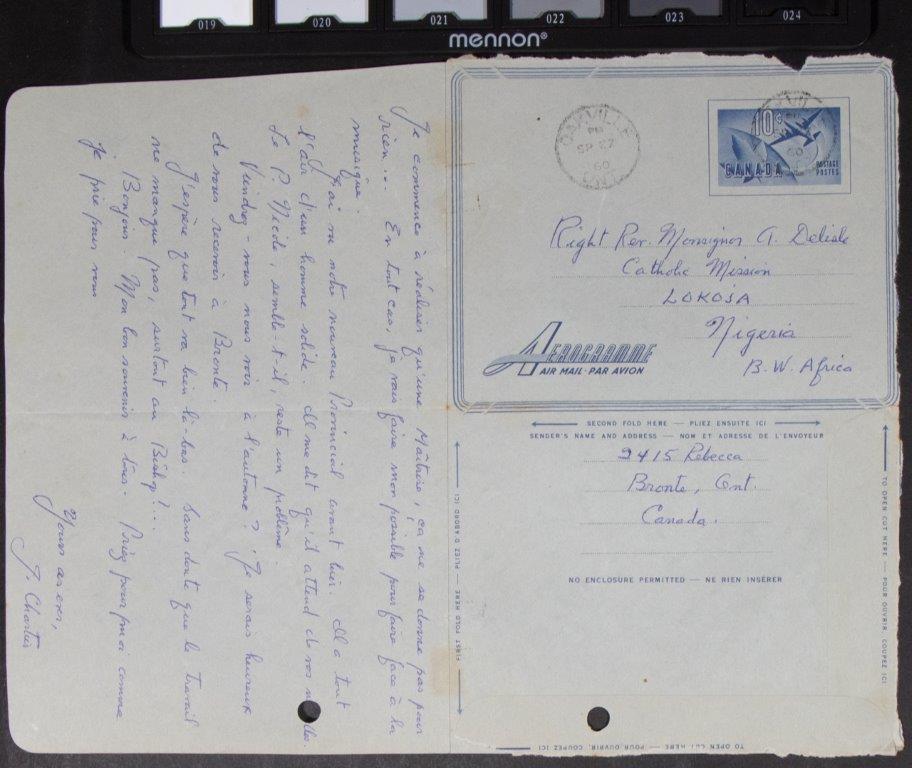 019 020 021 022 023 024
mennon®
OAKVILLE
PM
SP 27
60
ONT.
10¢
CANADA
POSTAGE
POSTES
Right Rev. Monsignor A. Delisle
Catholic Mission
LOKOJA
Nigeria
B. W. Africa
AEROGRAMME
AIR MAIL · PAR AVION
SECOND FOLD HERE — PLIEZ ENSUITE ICI
SENDER'S NAME AND ADDRESS — NOM ET ADRESSE DE L'ENVOYEUR
2415 Rebecca
Bronte, Ont.
Canada.
NO ENCLOSURE PERMITTED — NE RIEN INSÉRER
FIRST FOLD HERE — PLIEZ D'ABORD ICI
TO OPEN CUT HERE — POUR OUVRIR, COUPEZ ICI
TO OPEN CUT HERE — POUR OUVRIR, COUPEZ ICI
Je commence à réaliser qu'une Maîtrise, ça ne se donne pas pour
rien... En tout cas, je vais faire mon possible pour faire face à la
musique.
J'ai vu notre nouveau Provincial avant hier. Il a tout
l'air d'un homme solide. Il me dit qu'il attend de vos
Le P. , semble-t-il, reste un problème.
Viendrez-vous nous voir à l'automne? Je serais heureux
de vous recevoir à Bronte.
J'espère que tout va bien là-bas. Sans doute que le travail
ne manque pas, surtout au Bishop!...
Bonjour. Mon bon souvenir à tous. Priez pour moi comme
je prie pour vous
Yours as ever,
J. Chartier